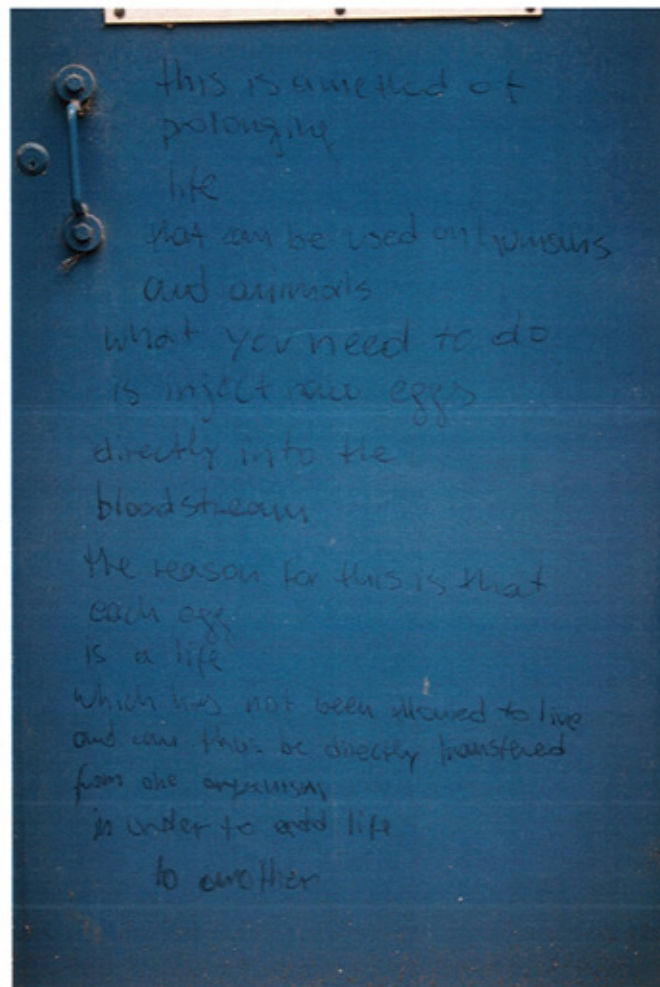 this is a method of
prolonging
life
that can be used on humans
and animals
what you need to do
is inject raw eggs
directly into the
bloodstream
the reason for this is that
each egg
is a life
which has not been allowed to live
and can thus be directly transfered
from one organism
in order to add life
to another